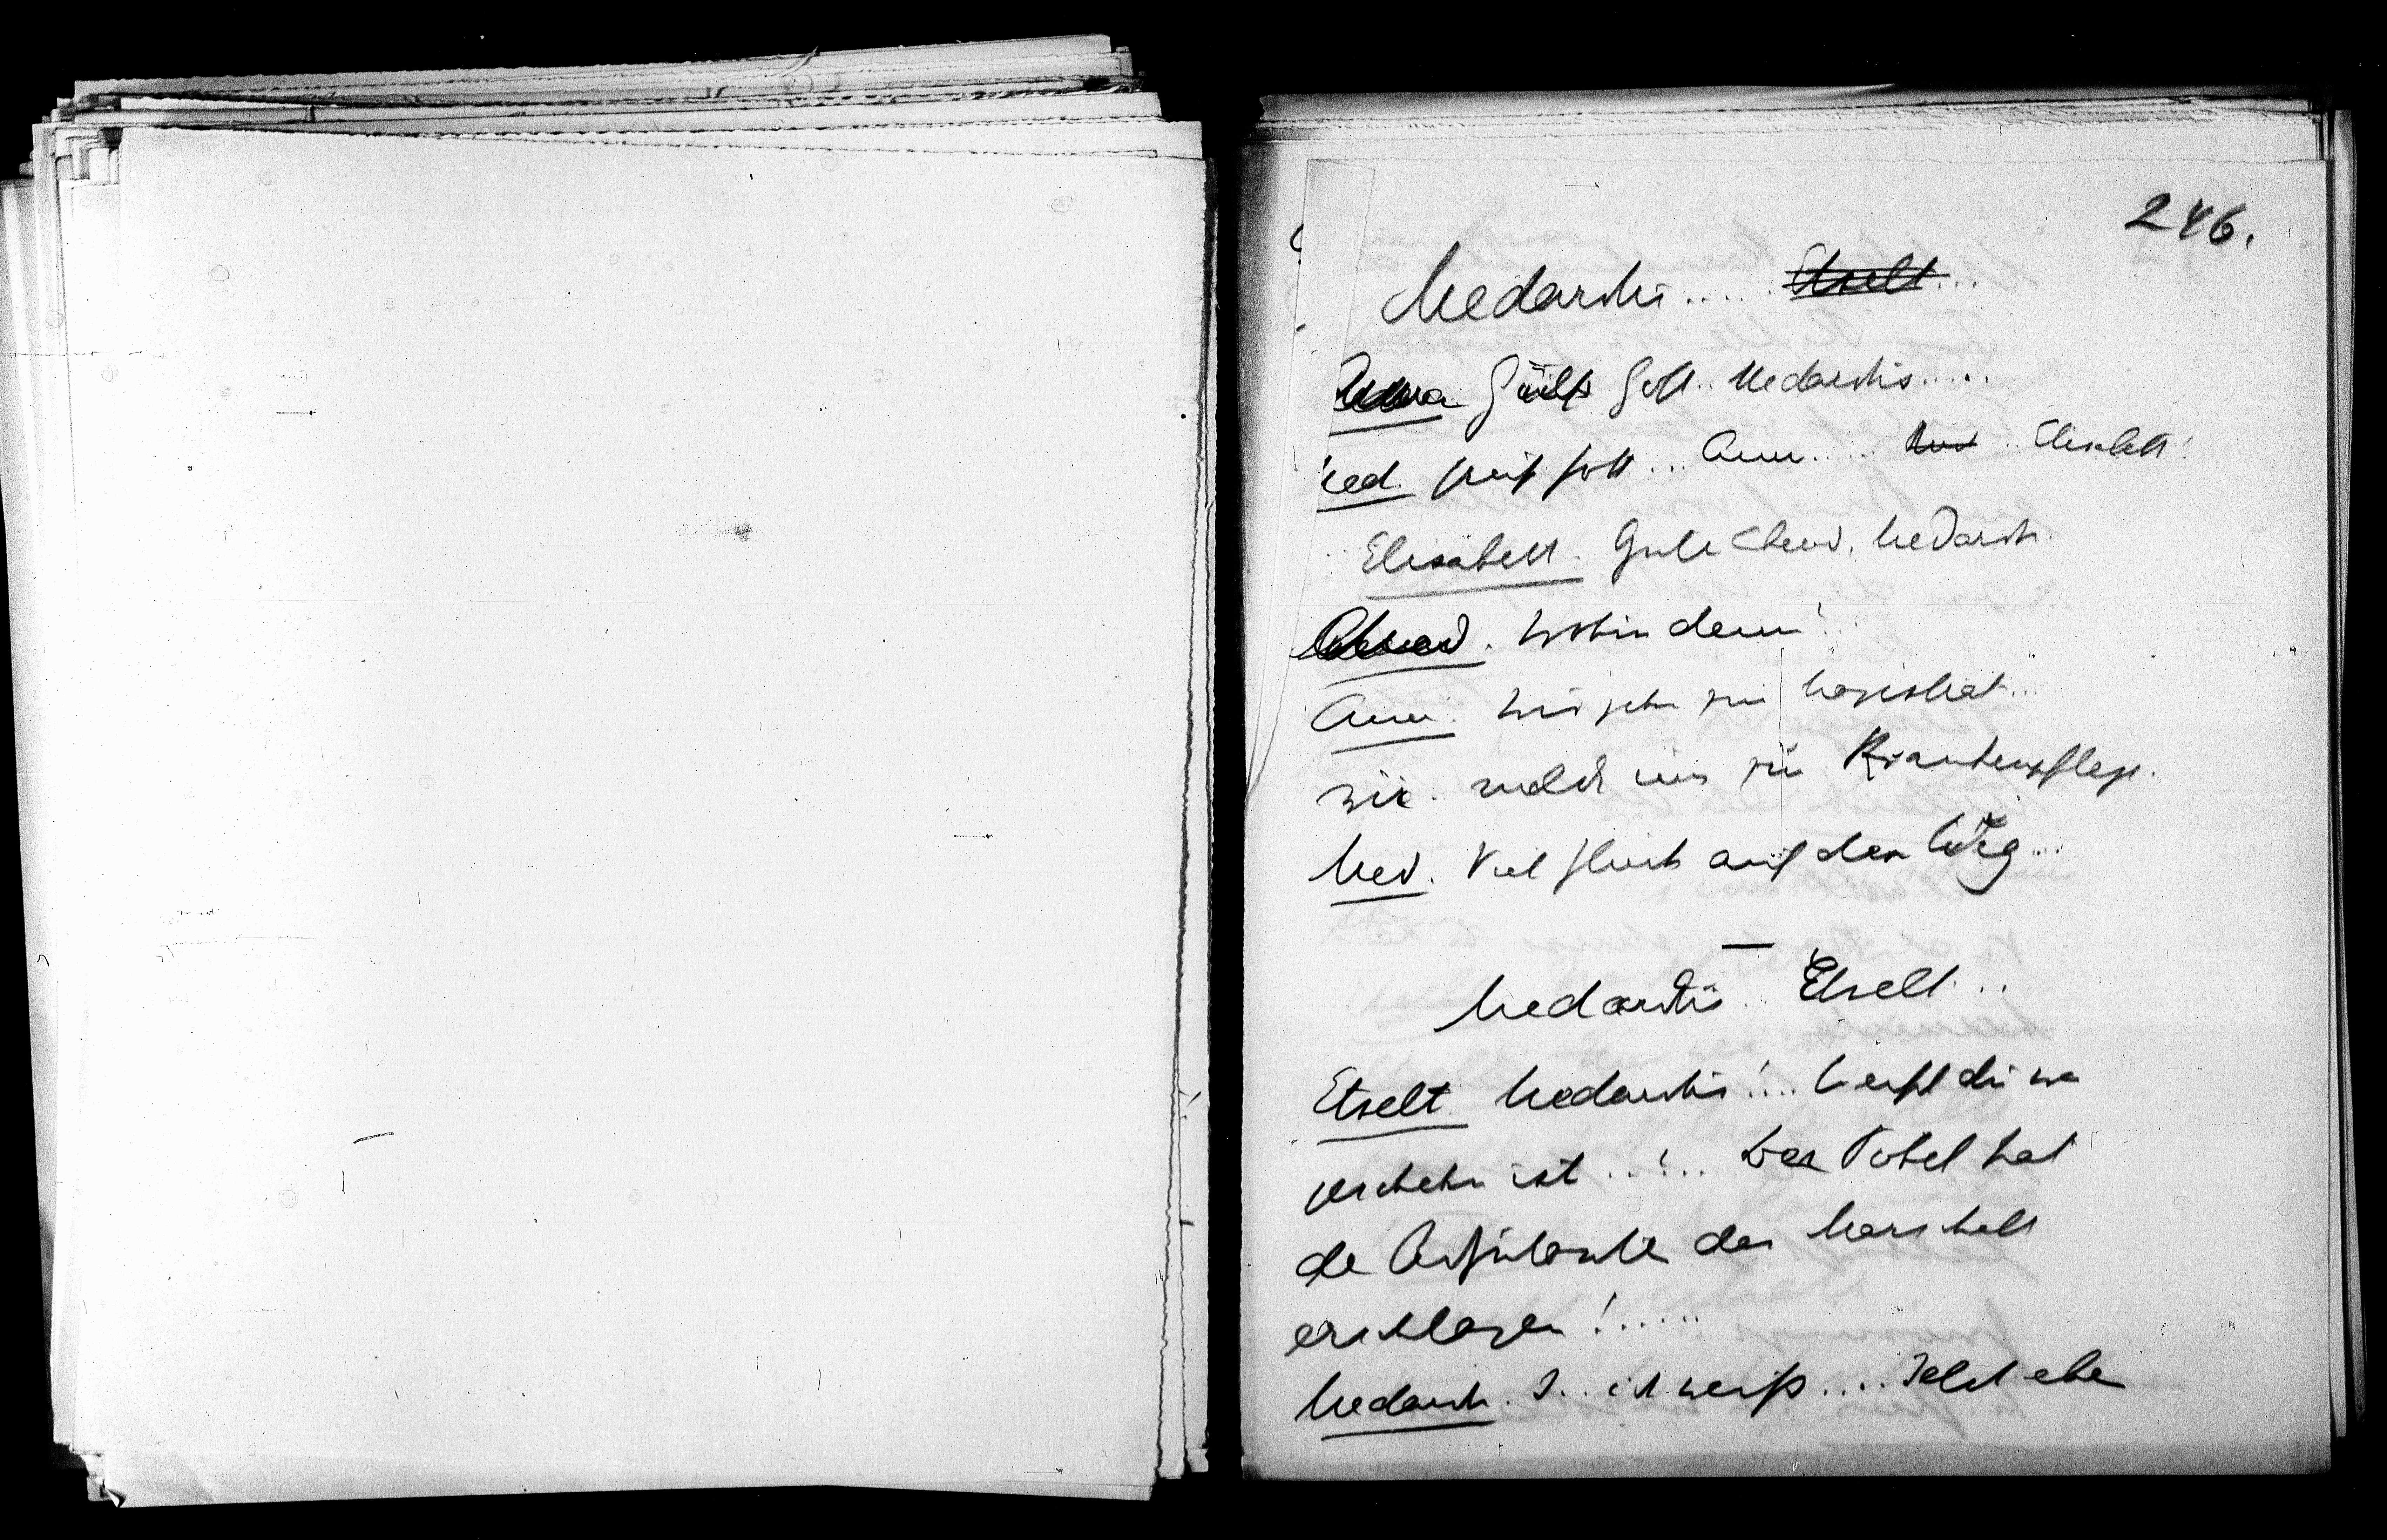 246.
Medardus..... Etzelt...
Anna Grüß Gott.. Medardus.....
Med. Grüß Gott... Anna..... Und.. Elisabeth!
Elisabeth. Gute Abend, Medardus.
Med. Wohin denn?..
Anna. Wir gehn zum Magistrat...
wir. melden uns zur Krankenpflege.
Med. Viel Glück auf den Weg...
—
Medardus.. Etzelt...
Etzelt. Medardus!... Weißt du was
geschehn ist..!.. Der Pöbel hat
de Adjutante des Marschalls
erschlagen!.....
Medardus. J.. ich weiß.... Jetzt ebe